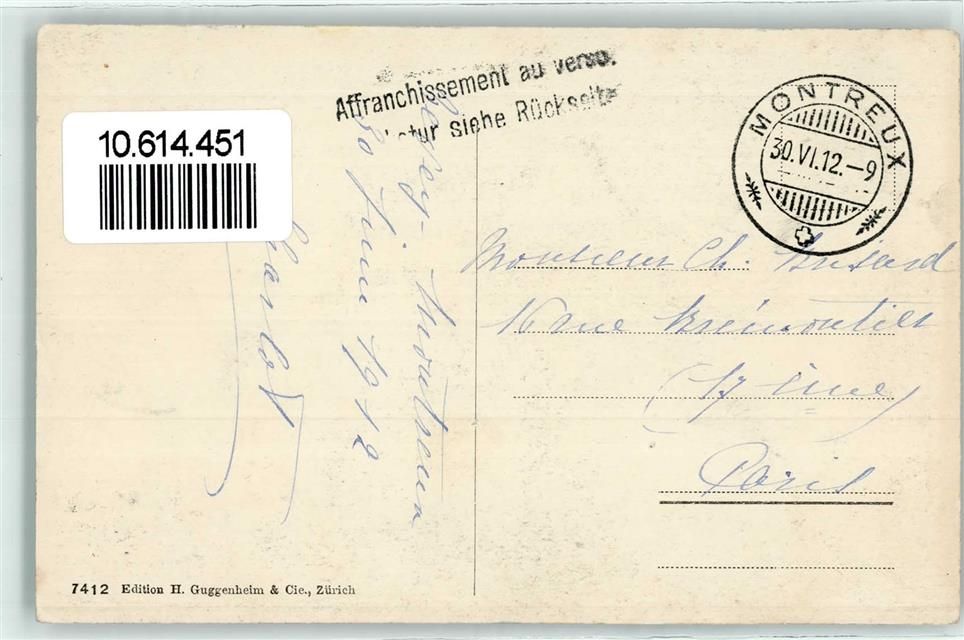 10.614.451
Affranchissement au verso.
siehe Rückseite
MONTREUX
30.VI.12.–9
Montreux
30 Juin 1912
Charlot
Monsieur Ch.
16 rue Brémontier
(17 ème)
Paris
7412 Edition H. Guggenheim & Cie., Zürich